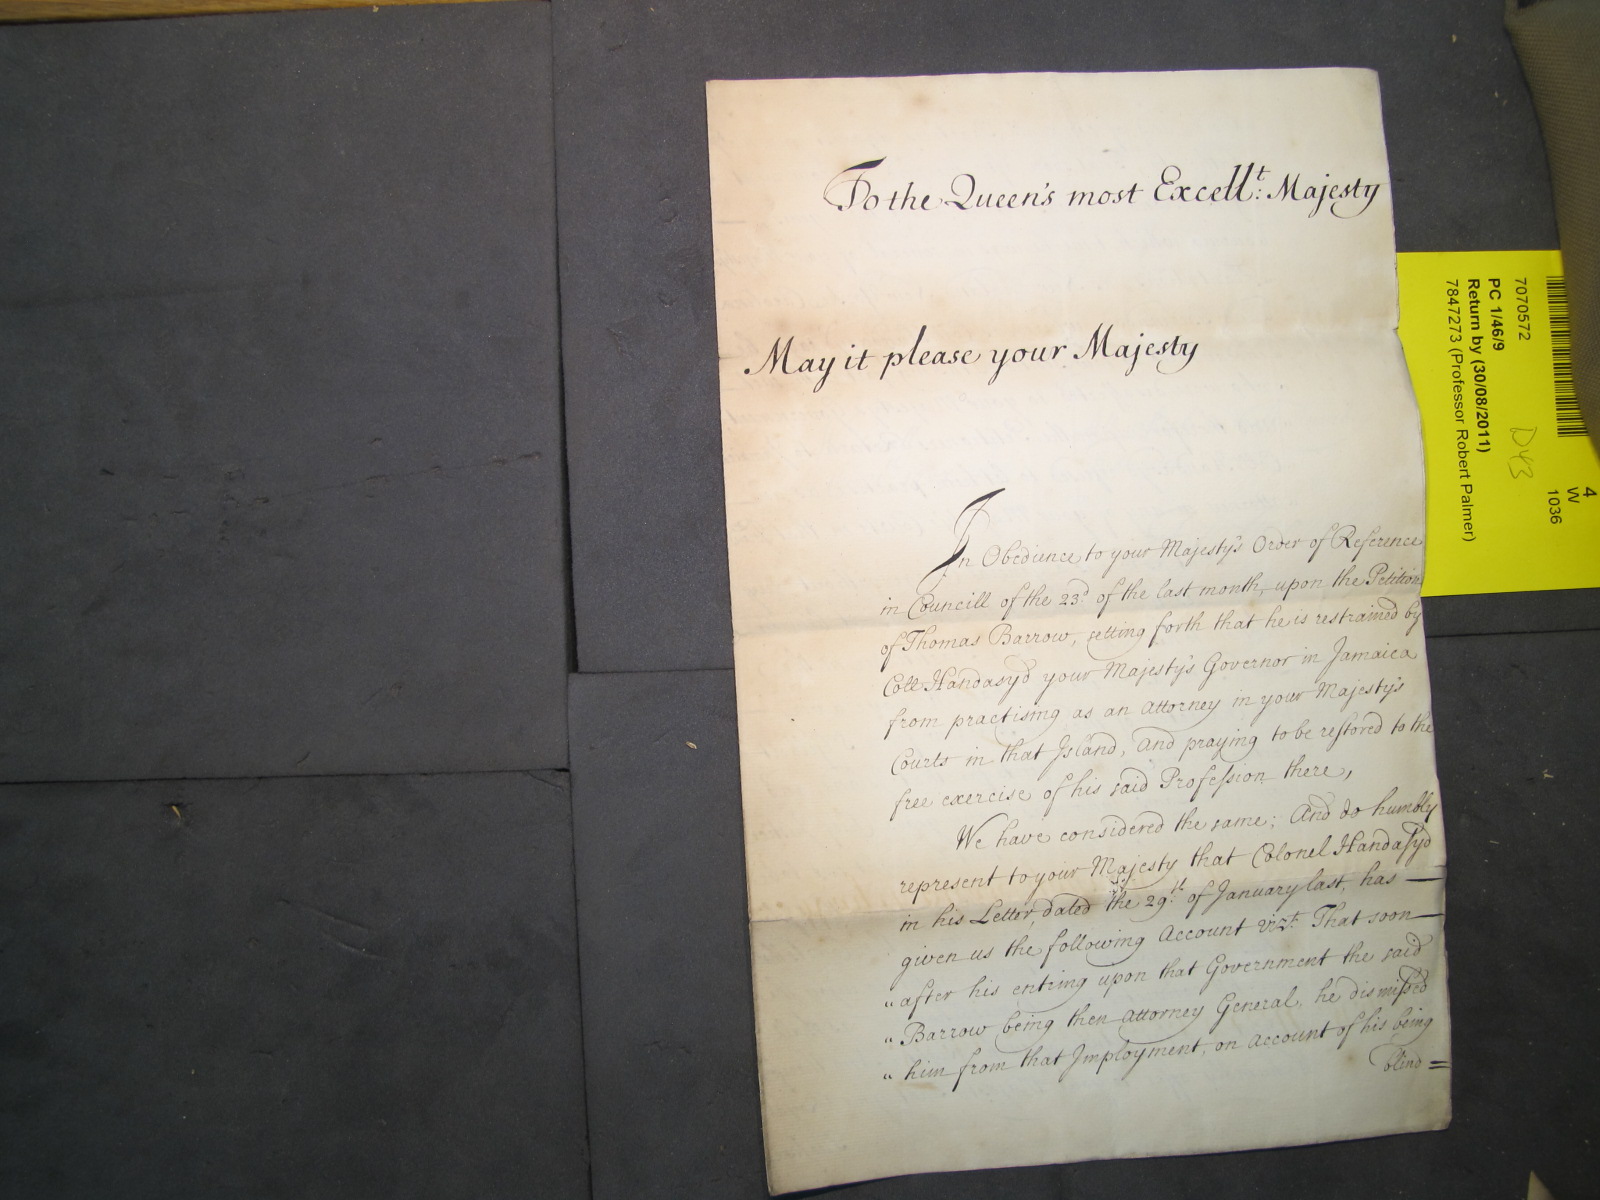 To the Queen's most Excell:t Majesty
May it please your Majesty
In Obedience to your Majesty's Order of Reference
in Councill of the 23d of the last month, upon the Petition
of Thomas Barrow, setting forth that he is restrained by
Coll Handasyd your Majesty's Governor in Jamaica
from practising as an Attorney in your Majesty's
Courts in that Island, and praying to be restored to the
free exercise of his said Profession there,
We have considered the same; And do humbly
represent to your Majesty that Colonel Handasyd
in his Letter, dated the 29th of January last, has —
given us the following Account vizt. That soon —
" after his entring upon that Government the said
" Barrow being then Attorney General, he dismissed
" him from that Imployment, on account of his being
blind =
7070572
PC 1/46/9
Return by (30/08/2011)
7847273 (Professor Robert Palmer)
D43
4
W
1036